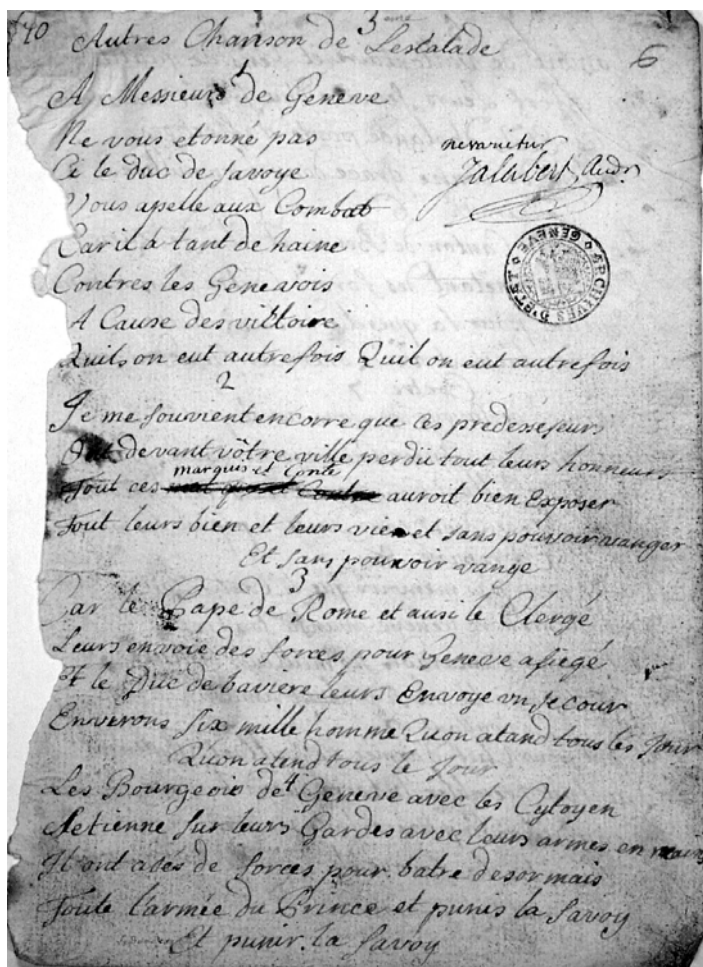 40 3eme 6
Autres Chanson de Lescalade
1
A Messieurs de Geneve
Ne vous etonné pas
Ci le duc de Savoye
Vous apelle aux Combat
Car il à tant de haine
Contres les Genevois
A Cause des viltoire
Quils on eut autrefois Quil on eut autrefois
ne varietur
Jalabert, Audr.
ARCHIVES D'ETAT GENEVE
2
Je me souvient encorre que ces predesseseurs
Ont devant vôtre ville perdû tout leurs honneurs
marquis et Conte
Tout ces auroit bien Exposer
Tout leurs bien et leurs vie et sans pouvoir vanger
Et sans pouvoir vange
3
Car le Pape de Rome et ausi le Clergé
Leurs envoie des forces pour Geneve asiegé
Et le Duc de baviere leurs Envoye un Secour
Enverons Six mille homme Quon atand tous les Jour
Quon atend tous le Jour
4
Les Bourgeois de Geneve avec les Cytoyen
Se tienne sur leurs Gardes avec leurs armes en mains
Il ont asés de forces pour batre desormais
Toute l'armée du Prince et punis la Savoy
Et punir la Savoy